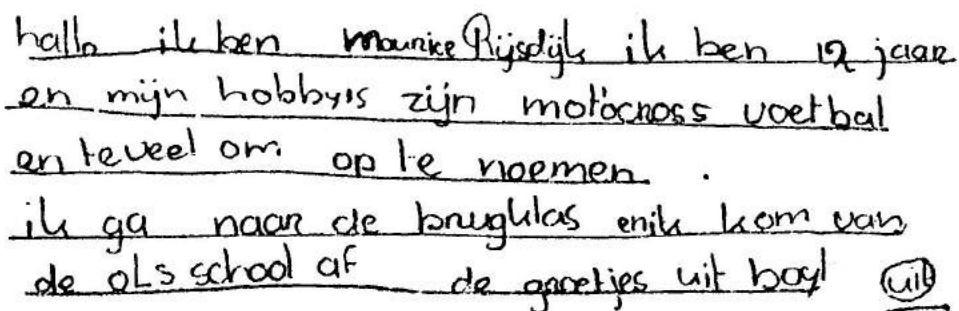 hallo ik ben Maurice Rijsdijk ik ben 12 jaar
en mijn hobbyis zijn motocross voetbal
en teveel om op te noemen .
ik ga naar de brugklas en ik kom van
de OLS school af de groetjes uit boyl
uit